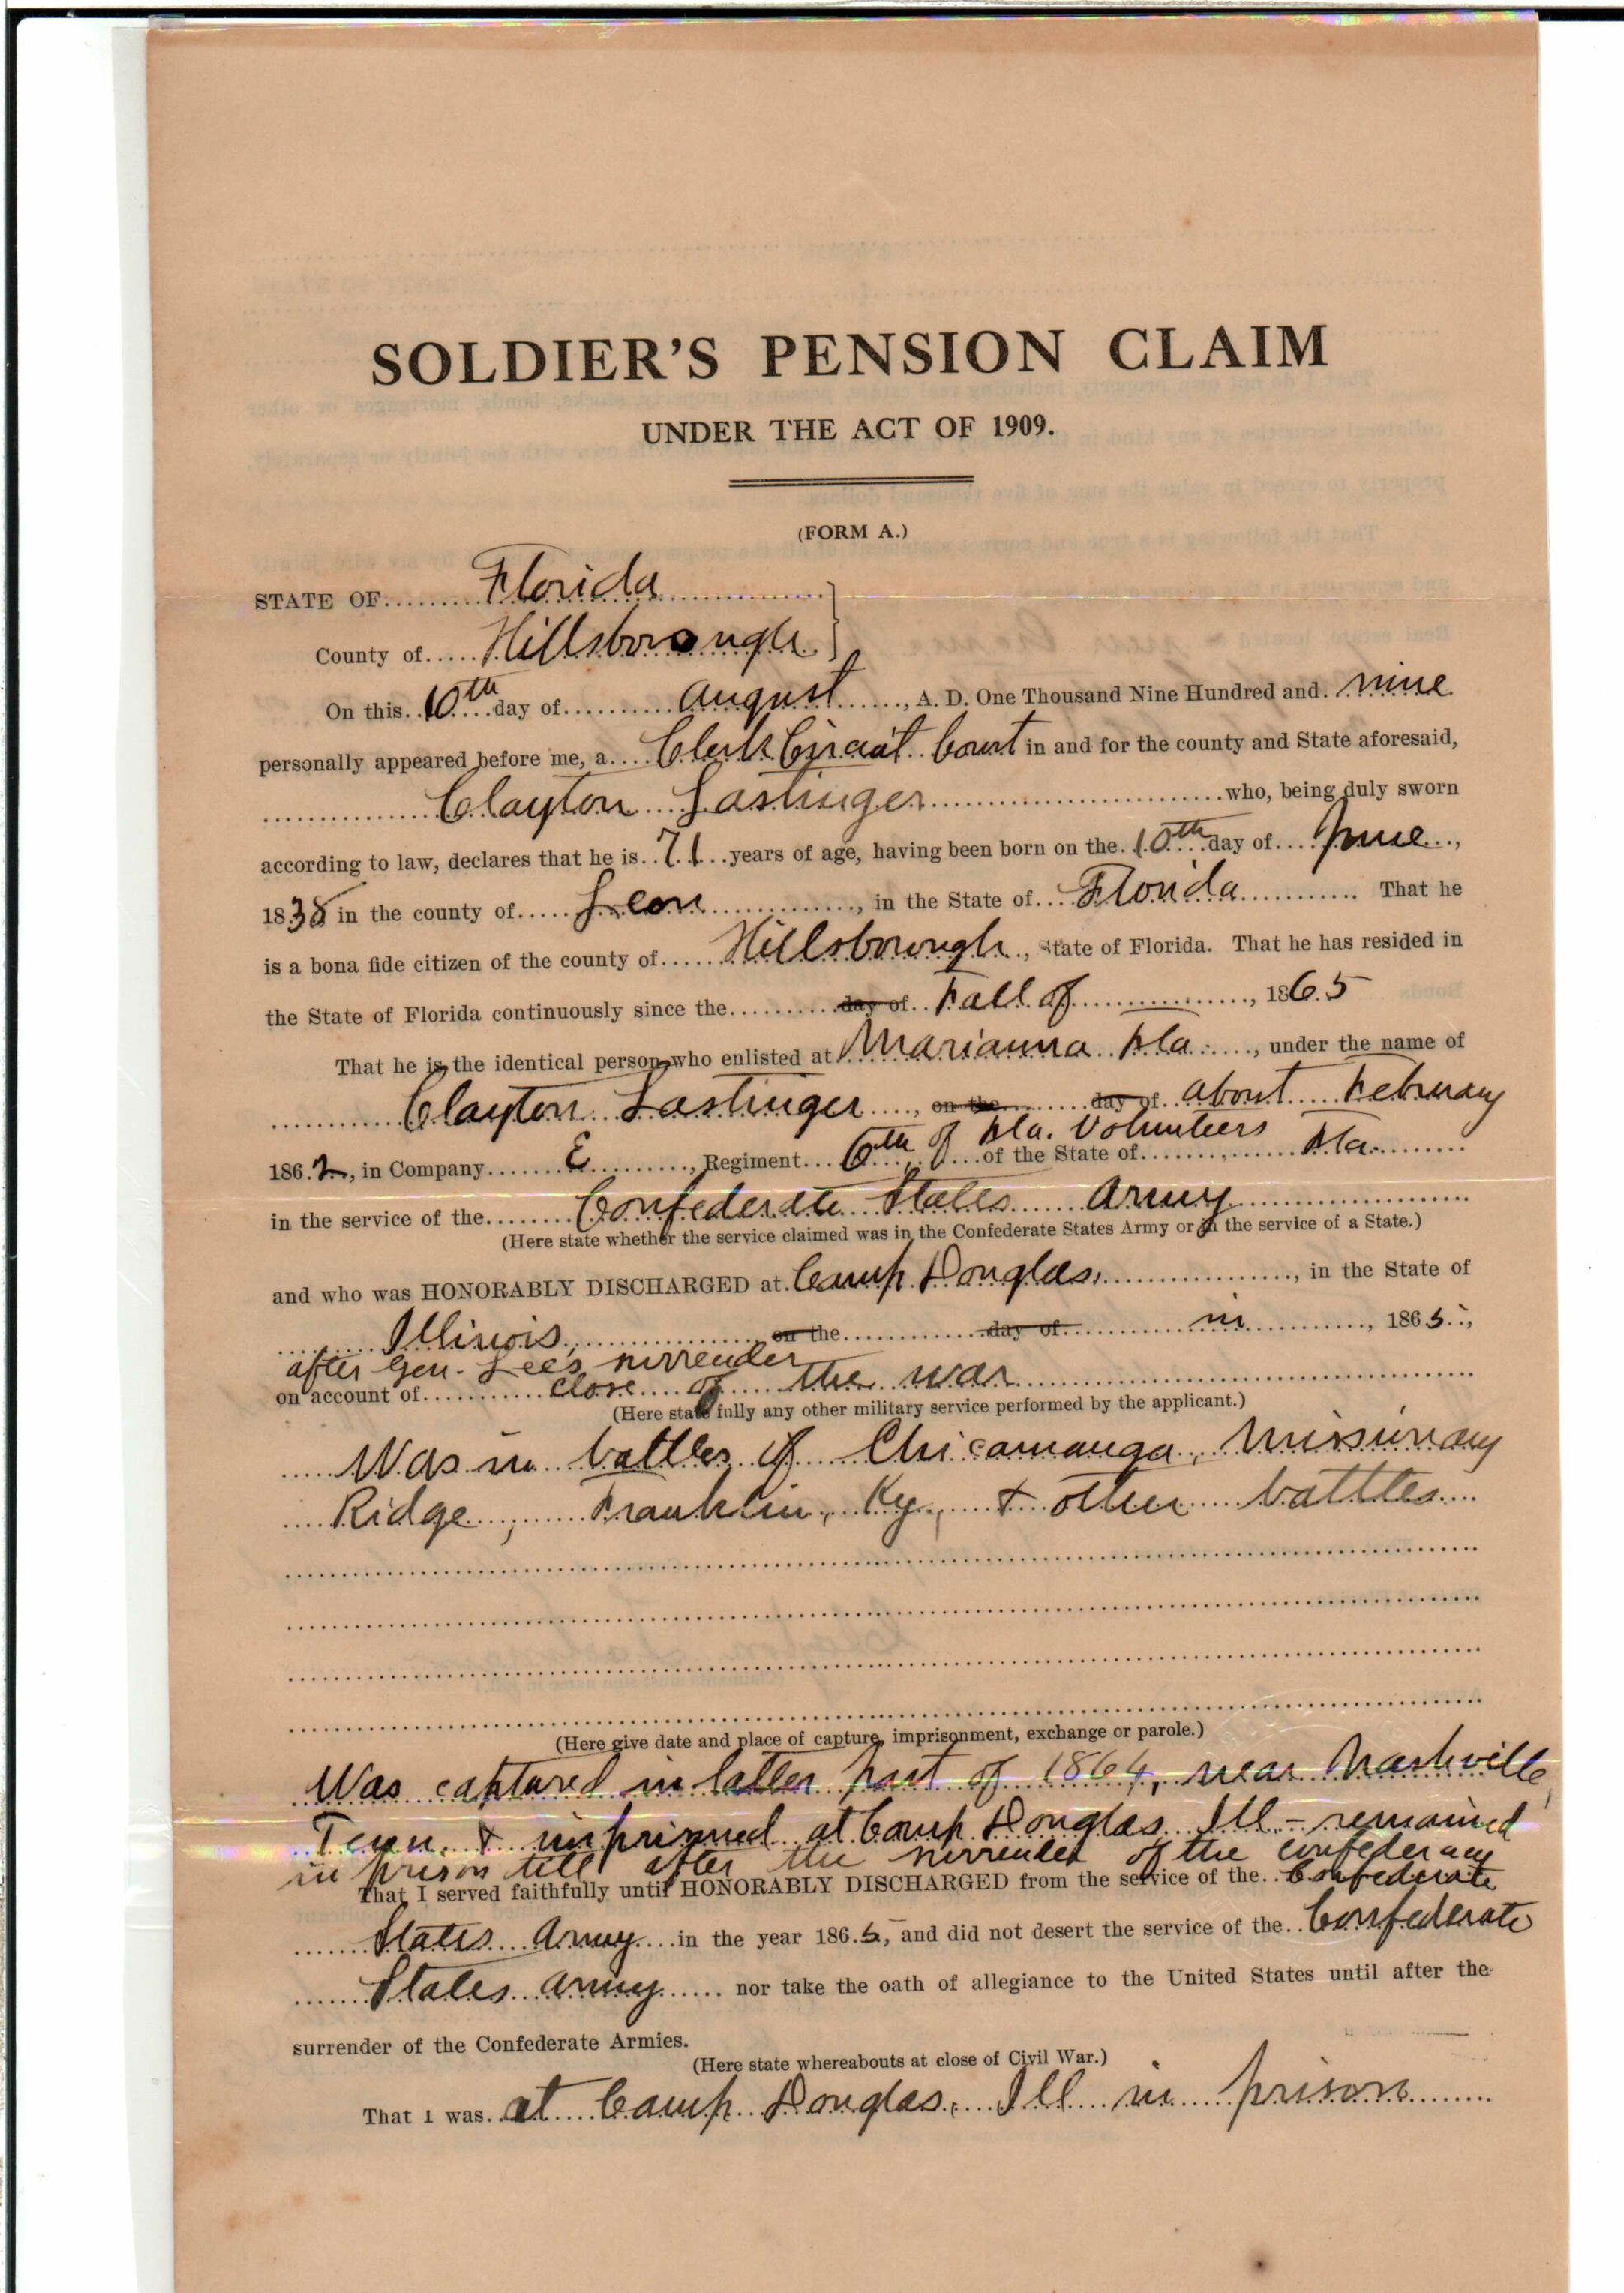 SOLDIER'S PENSION CLAIM
UNDER THE ACT OF 1909.
(FORM A.)
STATE OF Florida
County of Hillsborough
On this 10th day of August, A. D. One Thousand Nine Hundred and nine
personally appeared before me, a Clerk Circuit Court in and for the county and State aforesaid,
Clayton Lastinger who, being duly sworn
according to law, declares that he is 71 years of age, having been born on the 10th day of June,
1838 in the county of Leon, in the State of Florida. That he
is a bona fide citizen of the county of Hillsborough, State of Florida. That he has resided in
the State of Florida continuously since the day of Fall of, 1865
That he is the identical person who enlisted at Marianna Fla., under the name of
Clayton Lastinger, on the day of about February
1862, in Company E, Regiment 6th of Fla. Volunteers of the State of Fla.
in the service of the Confederate States Army
(Here state whether the service claimed was in the Confederate States Army or in the service of a State.)
and who was HONORABLY DISCHARGED at Camp Douglas, in the State of
Illinois, on the day of in, 1865,
after Gen. Lee's surrender
on account of close of the war
(Here state fully any other military service performed by the applicant.)
Was in battles of Chicamauga, Missionary
Ridge, Franklin, Ky, & other battles
(Here give date and place of capture, imprisonment, exchange or parole.)
Was captured in latter part of 1864, near Nashville,
Tenn. & imprisoned at Camp Douglas Ill - remained
in prison till after the surrender of the confederacy
That I served faithfully until HONORABLY DISCHARGED from the service of the Confederate
States Army in the year 1865, and did not desert the service of the Confederate
States Army nor take the oath of allegiance to the United States until after the
surrender of the Confederate Armies.
(Here state whereabouts at close of Civil War.)
That I was at Camp Douglas, Ill in prison